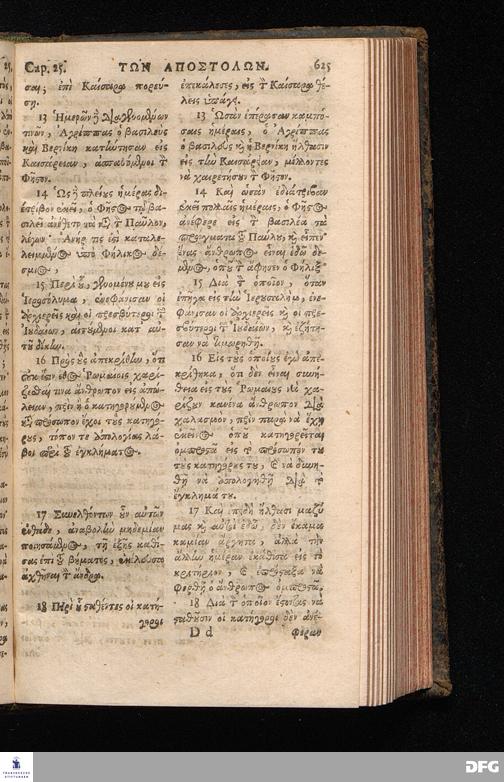 Cap. 25. ΤΩΝ ΑΠΟΣΤΟΛΩΝ. 625
σαι; ἐπὶ Καίσαρα πορεύ-
ση.
13 Ἡμερῶν δὲ διαγενομένων
τινῶν, Ἀγρίππας ὁ βασιλεὺς
καὶ Βερνίκη κατήντησαν εἰς
Καισάρειαν, ἀσπασόμενοι τὸν
Φῆστον.
14 Ὡς δὲ πλείους ἡμέρας δι-
έτριβον ἐκεῖ, ὁ Φῆστος τῷ βα-
σιλεῖ ἀνέθετο τὰ κατὰ τὸν Παῦλον,
λέγων· Ἀνήρ τίς ἐστι καταλε-
λειμμένος ὑπὸ Φήλικος δέ-
σμιος,
15 Περὶ οὗ, γενομένου μου εἰς
Ἱεροσόλυμα, ἐνεφάνισαν οἱ
ἀρχιερεῖς καὶ οἱ πρεσβύτεροι τῶν
Ἰουδαίων, αἰτούμενοι κατ' αὐ-
τοῦ δίκην.
16 Πρὸς οὓς ἀπεκρίθην, ὅτι
οὐκ ἔστιν ἔθος Ῥωμαίοις χαρί-
ζεσθαί τινα ἄνθρωπον εἰς ἀπώ-
λειαν, πρὶν ἢ ὁ κατηγορούμενος
κατὰ πρόσωπον ἔχοι τοὺς κατηγό-
ρους, τόπον τε ἀπολογίας λά-
βοι περὶ τοῦ ἐγκλήματος.
17 Συνελθόντων οὖν αὐτῶν
ἐνθάδε, ἀναβολὴν μηδεμίαν
ποιησάμενος, τῇ ἑξῆς καθί-
σας ἐπὶ τοῦ βήματος, ἐκέλευσα
ἀχθῆναι τὸν ἄνδρα.
18 Περὶ οὗ σταθέντες οἱ κατή-
γοροι
ἐπικάλεσες, εἰς τὸν Καίσαρα θέ-
λεις ὑπάγῃ.
13 Ὡσὰν ἐπέρασαν καμπό-
σαις ἡμέραις, ὁ Ἀγρίππας
ὁ βασιλεὺς καὶ ἡ Βερνίκη ἤλθασιν
εἰς τὴν Καισάρειαν, μέλλοντες
νὰ χαιρετήσουν τὸν Φῆστον.
14 Καὶ ὡσὰν ἐδιάτριβαν
ἐκεῖ πολλαῖς ἡμέραις, ὁ Φῆστος
ἀνέφερε εἰς τὸν βασιλέα τὰ
πράγματα τοῦ Παύλου, καὶ εἶπεν·
ἕνας ἄνθρωπος εἶναι ἐδῶ δε-
μένος, ὁποῦ τὸν ἄφησεν ὁ Φήλιξ
15 Διὰ τὸν ὁποῖον, ὅταν
ἐπῆγα εἰς τὴν Ἱερουσαλὴμ, ἐνε-
φάνισαν οἱ ἀρχιερεῖς καὶ οἱ πρε-
σβύτεροι τῶν Ἰουδαίων, καὶ ἐζήτη-
σαν νὰ τιμωρηθῇ.
16 Εἰς τοὺς ὁποίους ἐγὼ ἀπε-
κρίθηκα, ὅτι δὲν εἶναι συνή-
θεια εἰς τοὺς Ῥωμαίους νὰ χα-
ρίζουν κανένα ἄνθρωπον διὰ
χαλασμὸν, πρὶν παρὰ νὰ ἔχῃ
ἐκεῖνος ὁποῦ κατηγορεῖται
ὀμπροστὰ εἰς τὸ πρόσωπόν του
τοὺς κατηγόρους του, καὶ νὰ δυνη-
θῇ νὰ ἀπολογηθῇ διὰ τὸ
ἔγκλημά του.
17 Καὶ ἐπειδὴ ἤλθασι μαζὺ
μας καὶ αὐτοὶ ἐδῶ, δὲν ἔκαμα
καμίαν ἄργητα, ἀλλὰ τὴν
ἄλλην ἡμέραν ἐκάθισα εἰς τὸ
κριτήριον, καὶ ἐπρόσταξα νὰ
φερθῇ ὁ ἄνθρωπος ὀμπροστά.
18 Διὰ τὸν ὁποῖον ἔστοντας νὰ
σταθοῦσιν οἱ κατήγοροι δὲν ἀνέ-
Dd φεραν
DFG